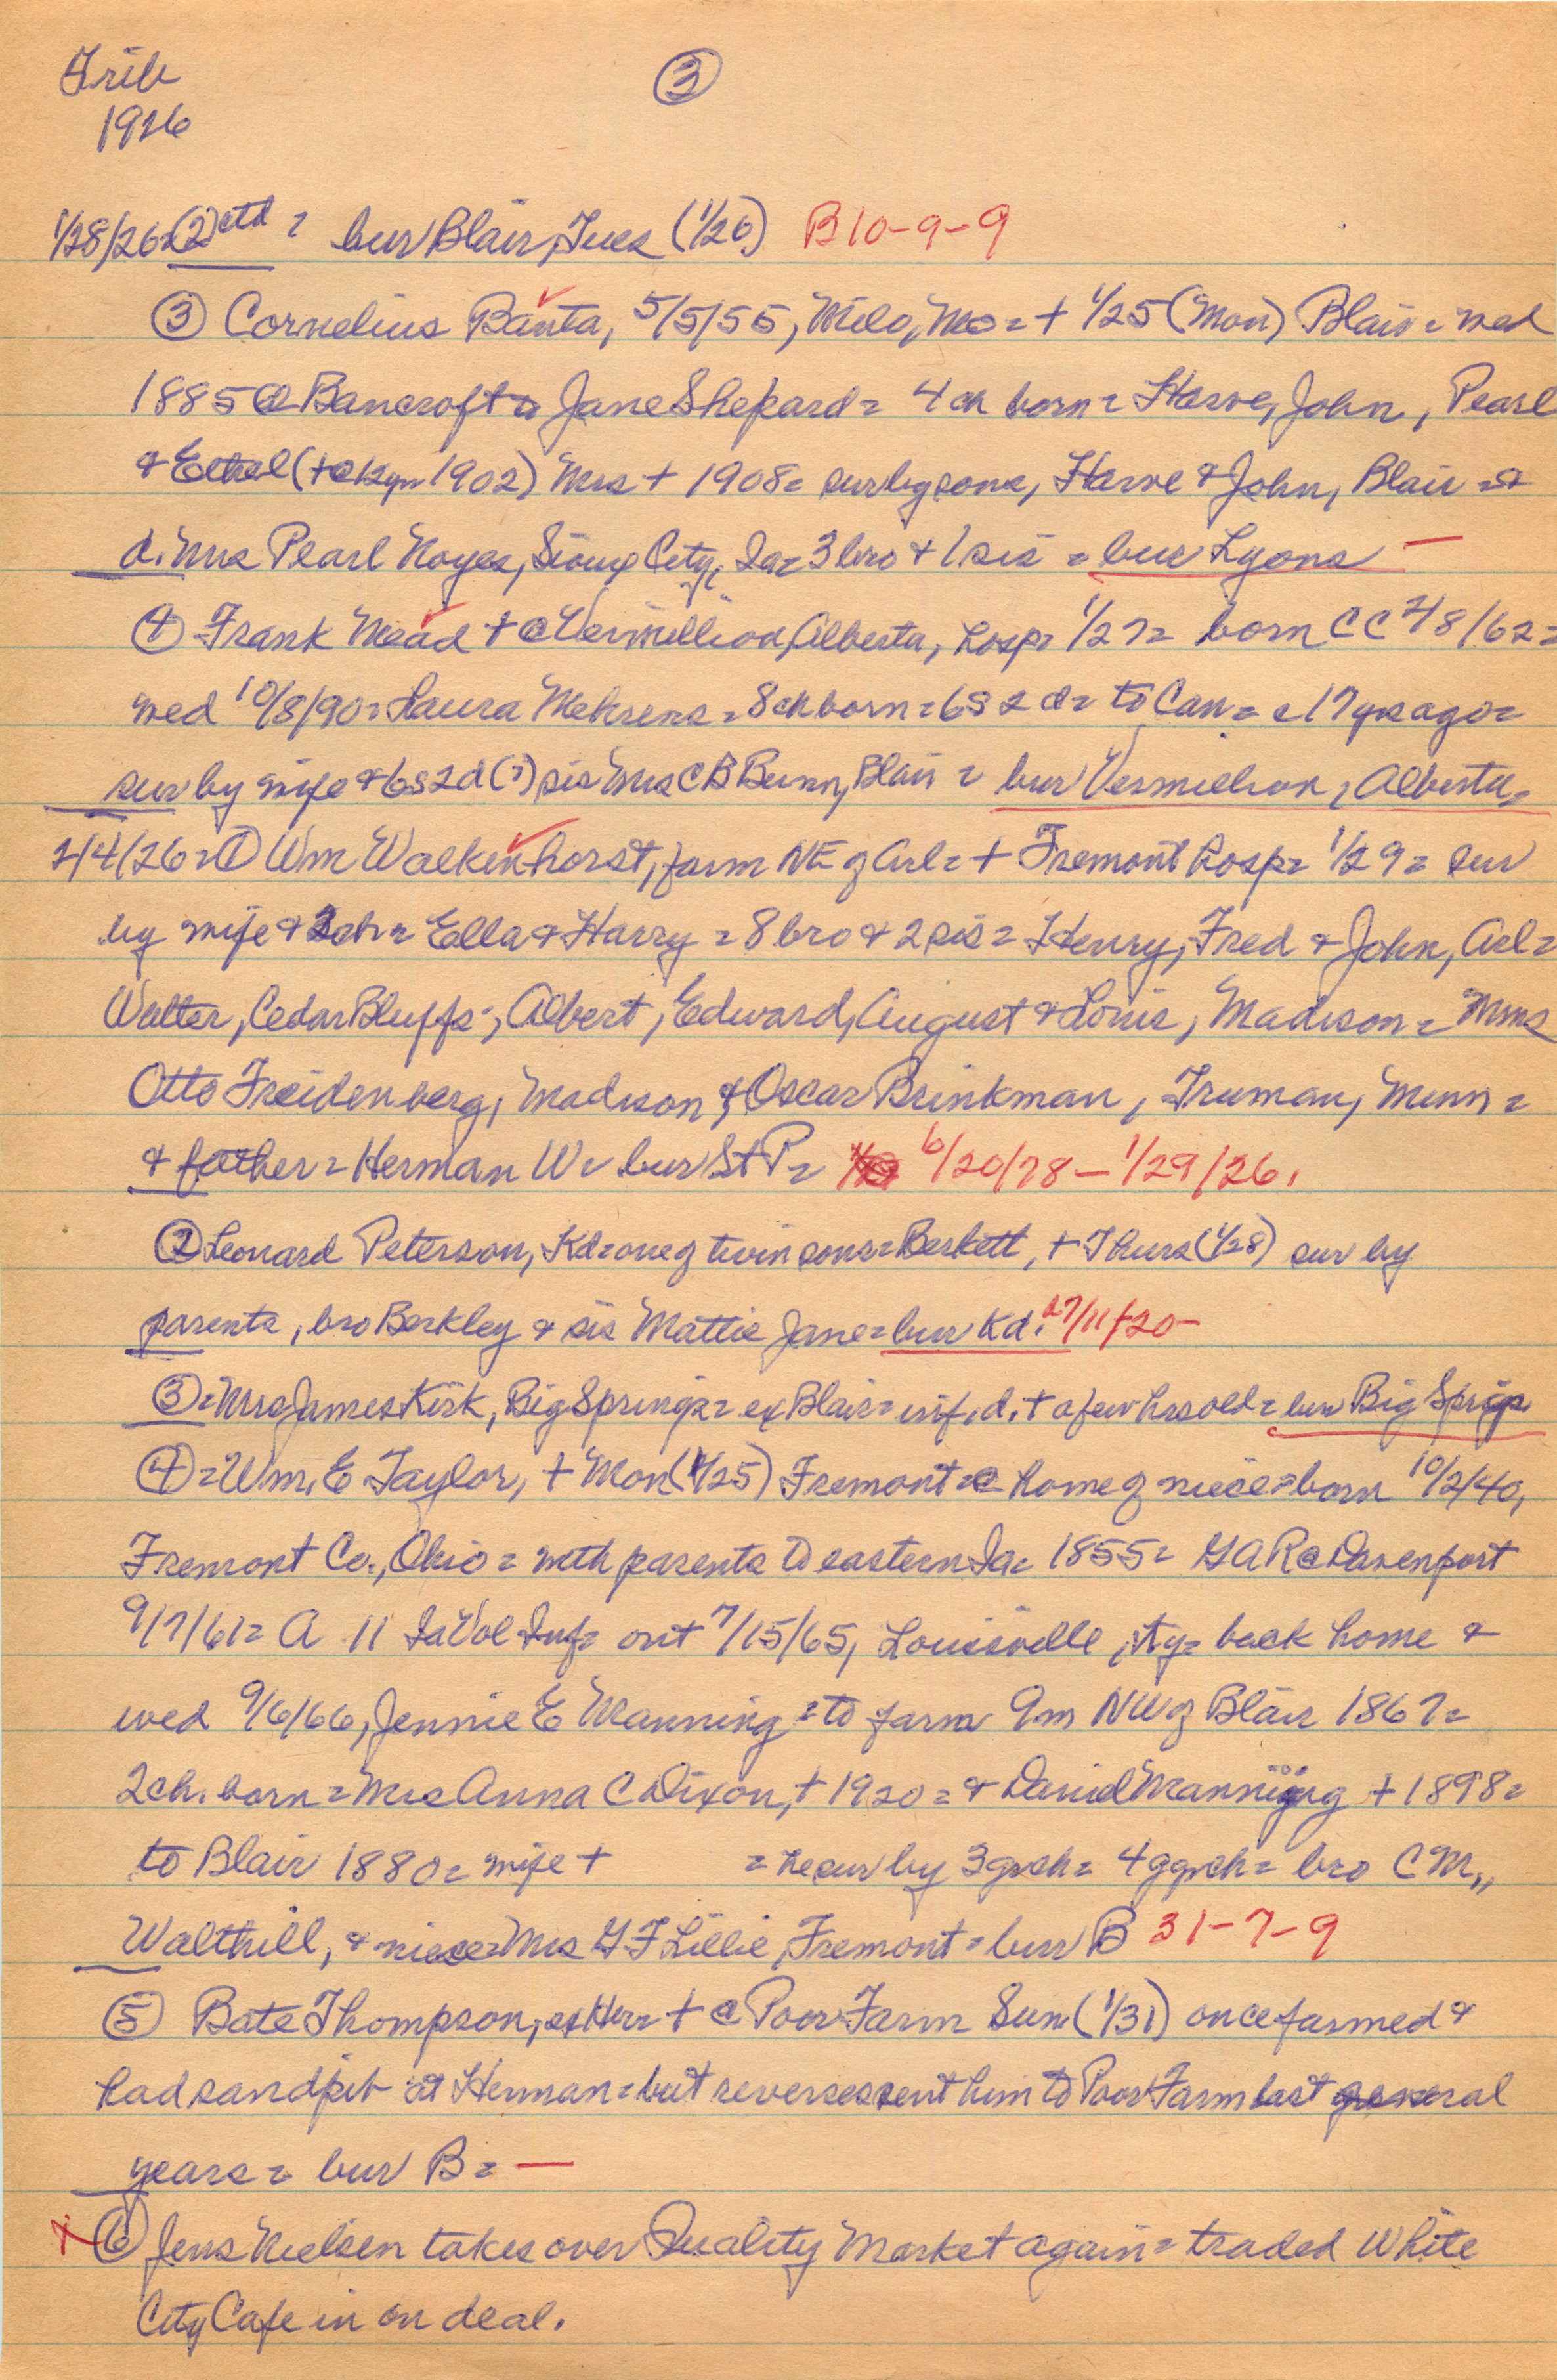 Trib ③
1926
1/28/26=(2)ctd = bur Blair, Tues (1/26) B10-9-9
③ Cornelius Banta, 5/5/55, Milo, Mo = + 1/25 (Mon) Blair = wed
1885 @ Bancroft = Jane Shepard = 4 ch born = Harve, John, Pearl
& Ethel (+ @ 12 yrs 1902) Mrs + 1908 = sur by sons, Harve & John, Blair = &
d. Mrs Pearl Noyes, Sioux City, Ia = 3 bro & 1 sis = bur Lyons —
④ Frank Mead + @ Vermillion, Alberta, hosp = 1/27 = born CC 2/8/62 =
wed 10/8/90 = Laura Mehrens = 8 ch born = 6s 2 d = to Can = c 17 yrs ago =
sur by wife & 6s 2d (?) sis Mrs C B Bunn, Blair = bur Vermillion, Alberta =
2/4/26=① Wm Walkenhorst, farm NE of Arl = + Fremont hosp = 1/29 = sur
by wife & 2 ch = Ella & Harry = 8 bro & 2 sis = Henry, Fred & John, Arl =
Walter, Cedar Bluffs; Albert, Edward, August & Louis, Madison = Mmes
Otto Freidenberg, Madison & Oscar Brinkman, Truman, Minn =
& father = Herman W = bur St P = 6/20/78 — 1/29/26.
② Leonard Peterson, Kd = one of twin sons = Berkett, + Thurs (1/28) sur by
parents, bro Berkley & sis Mattie Jane = bur Kd. 7/11/20 —
③ = Mrs James Kirk, Big Springs = ex Blair = inf. d. + a few hrs old = bur Big Sprigs
④ = Wm. E Taylor, + Mon (1/25) Fremont = @ home of niece = born 10/2/40,
Fremont Co., Ohio = with parents to eastern Ia = 1855 = GAR @ Davenport
9/7/61 = A 11 Ia Vol Inf = out 7/15/65, Louisville, Ky = back home &
wed 9/6/66, Jennie E Manning = to farm 9m NW of Blair 1867 =
2 ch. born = Mrs Anna C Dixon, + 1920 = & David Manning + 1898 =
to Blair 1880 = wife + = he sur by 3 grch = 4 ggrch = bro C M,,
Walthill, & niece = Mrs G F Lillie, Fremont = bur B 31-7-9
⑤ Bate Thompson, ex Her = + @ Poor Farm Sun (1/31) once farmed &
had sandpit at Herman = but reverses sent him to Poor Farm last several
years = bur B = —
x ⑥ Jens Nielsen takes over Quality Market again = traded White
City Cafe in on deal.